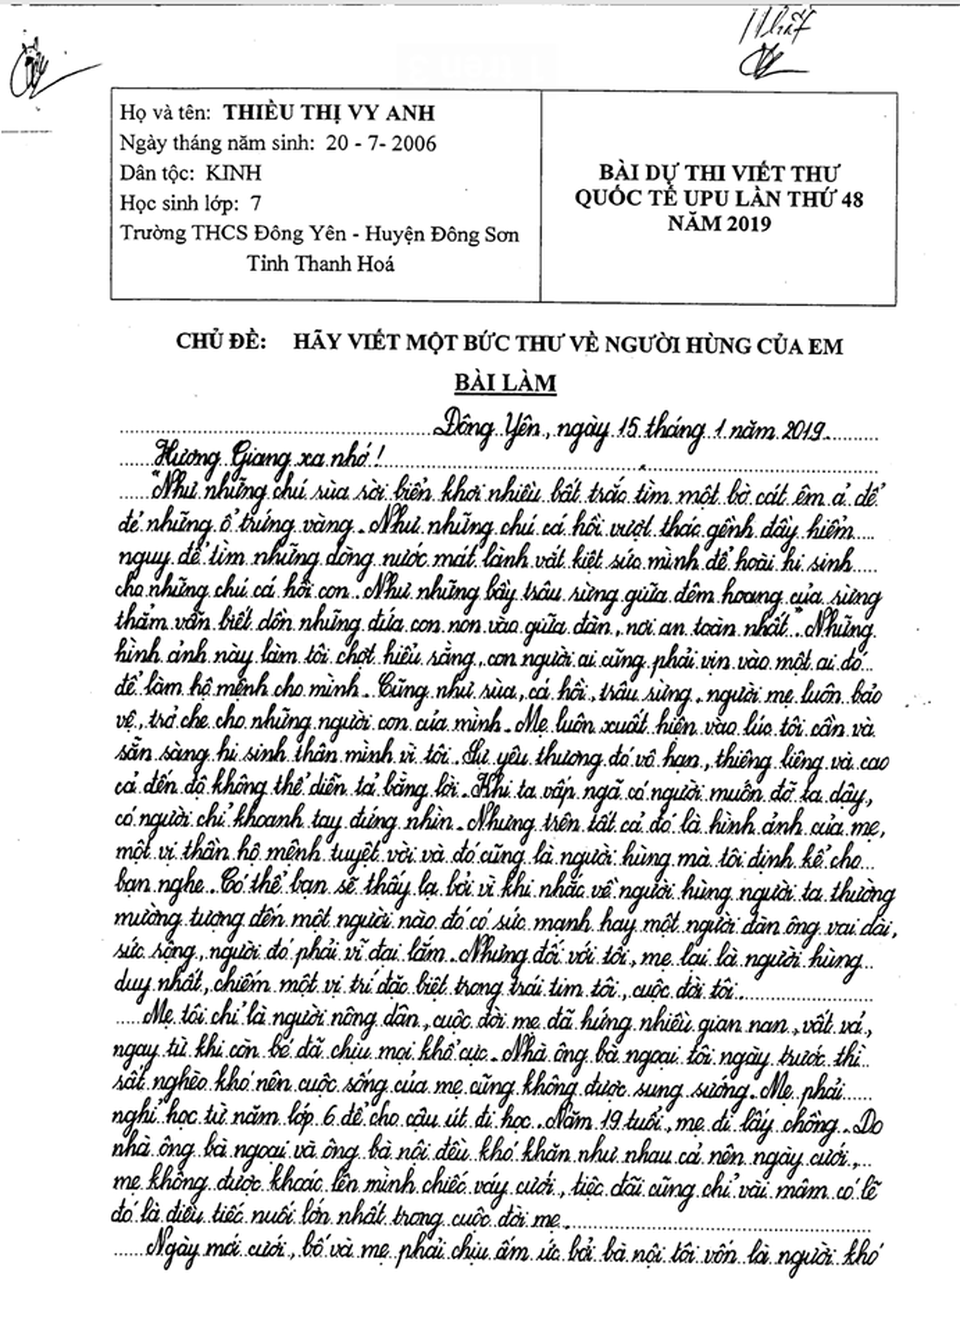 Nhất
Họ và tên: THIỀU THỊ VY ANH
Ngày tháng năm sinh: 20 - 7- 2006
Dân tộc: KINH
Học sinh lớp: 7
Trường THCS Đông Yên - Huyện Đông Sơn
Tỉnh Thanh Hoá
BÀI DỰ THI VIẾT THƯ
QUỐC TẾ UPU LẦN THỨ 48
NĂM 2019
CHỦ ĐỀ: HÃY VIẾT MỘT BỨC THƯ VỀ NGƯỜI HÙNG CỦA EM
BÀI LÀM
Đông Yên, ngày 15 tháng 1 năm 2019.
Hương Giang xa nhớ!
"Như những chú rùa rời biển khơi nhiều bất trắc tìm một bờ cát êm ả để
đẻ những ổ trứng vàng. Như những chú cá hồi vượt thác gềnh đầy hiểm
nguy để tìm những dòng nước mát lành vắt kiệt sức mình để hoài hi sinh
cho những chú cá hồi con. Như những bầy trâu rừng giữa đêm hoang của rừng
thẳm vẫn biết dồn những đứa con non vào giữa đàn, nơi an toàn nhất". Những
hình ảnh này làm tôi chợt hiểu rằng, con người ai cũng phải vịn vào một ai đó
để làm hộ mệnh cho mình. Cũng như rùa, cá hồi, trâu rừng, người mẹ luôn bảo
vệ, trở che cho những người con của mình. Mẹ luôn xuất hiện vào lúc tôi cần và
sẵn sàng hi sinh thân mình vì tôi. Sự yêu thương đó vô hạn, thiêng liêng và cao
cả đến độ không thể diễn tả bằng lời. Khi ta vấp ngã có người muốn đỡ ta dậy,
có người chỉ khoanh tay đứng nhìn. Nhưng trên tất cả đó là hình ảnh của mẹ,
một vị thần hộ mệnh tuyệt vời và đó cũng là người hùng mà tôi định kể cho
bạn nghe. Có thể bạn sẽ thấy lạ bởi vì khi nhắc về người hùng người ta thường
mường tượng đến một người nào đó có sức mạnh hay một người đàn ông vai dài,
sức rộng, người đó phải vĩ đại lắm. Nhưng đối với tôi, mẹ lại là người hùng
duy nhất, chiếm một vị trí đặc biệt trong trái tim tôi, cuộc đời tôi.
Mẹ tôi chỉ là người nông dân, cuộc đời mẹ đã hứng nhiều gian nan, vất vả,
ngay từ khi còn bé đã chịu mọi khổ cực. Nhà ông bà ngoại tôi ngày trước thì
rất nghèo khó nên cuộc sống của mẹ cũng không được sung sướng. Mẹ phải
nghỉ học từ năm lớp 6 để cho cậu út đi học. Năm 19 tuổi, mẹ đi lấy chồng. Do
nhà ông bà ngoại và ông bà nội đều khó khăn như nhau cả nên ngày cưới,
mẹ không được khoác lên mình chiếc váy cưới, tiệc đãi cũng chỉ vài mâm có lẽ
đó là điều tiếc nuối lớn nhất trong cuộc đời mẹ.
Ngày mới cưới, bố và mẹ phải chịu ấm ức bởi bà nội tôi vốn là người khó